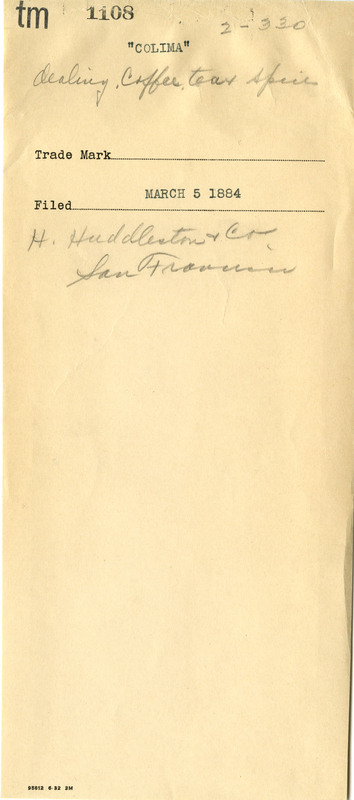 tm 1108 2-330
"COLIMA"
dealing, Coffee, tea & spices
Trade Mark
MARCH 5 1884
Filed
H. Huddleston & Co.
San Francisco
95912 6-32 2M